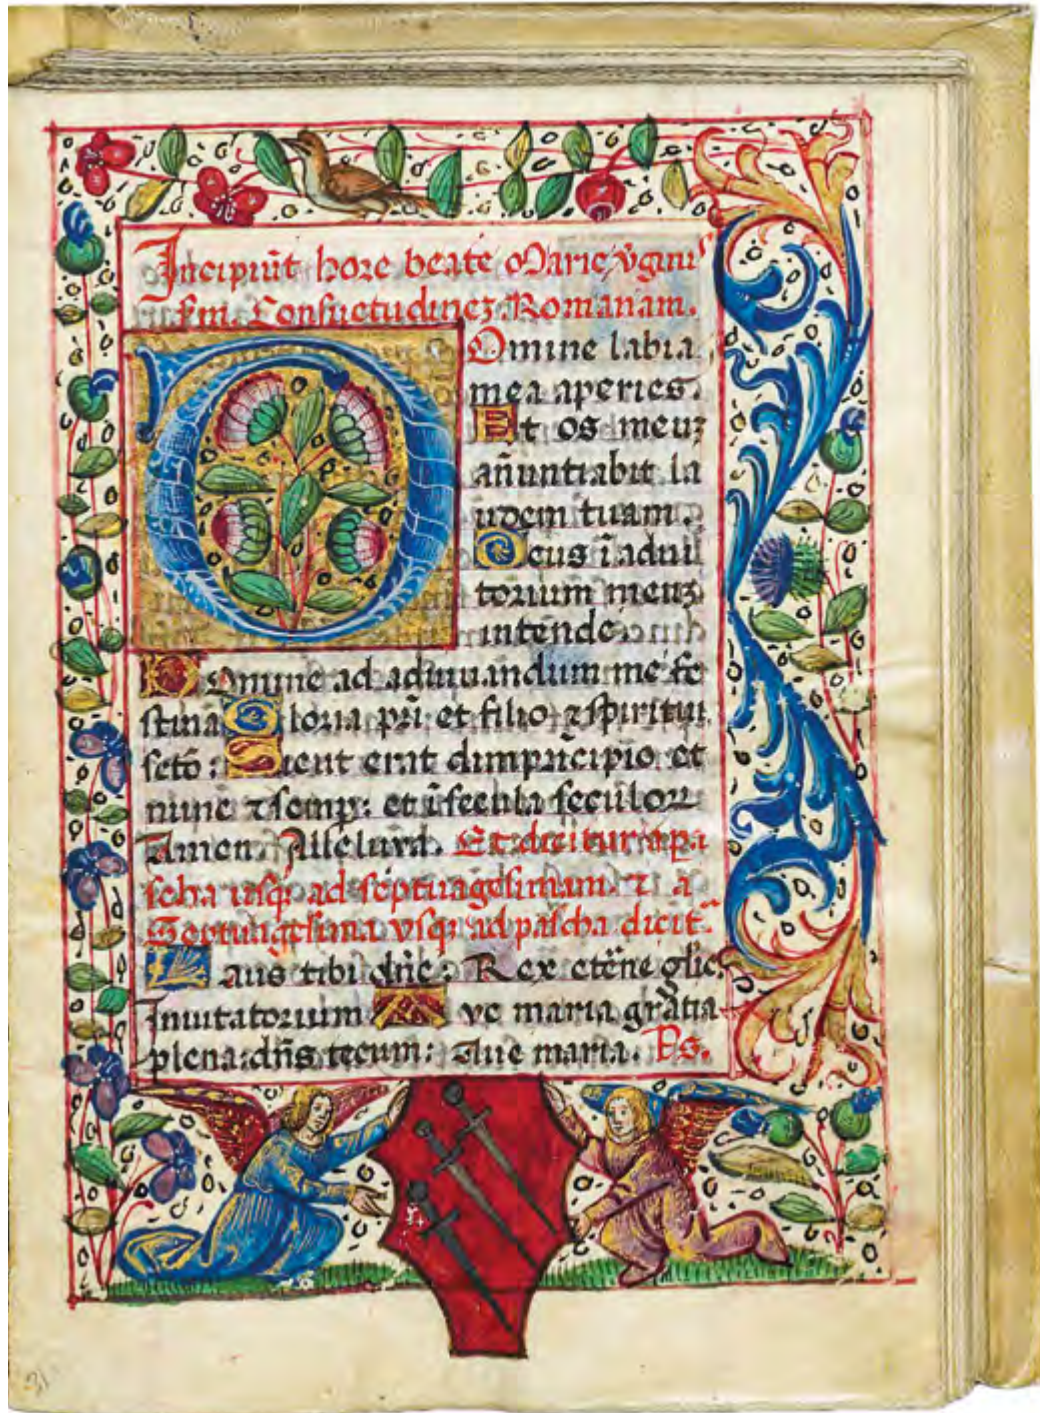 Incipiūt hore beate Marie v̄gini͛
ẜm. Consuetudinez Romanam.
Omine labia
mea aperies.
Et os meuz
añuntiabit la
udem tuam.
Deus ī adiui
torium meuz
intende
Domine ad adiuuandum me fe
stina Gloria pr̄i et filio ⁊ spiritui
sctō: Sicut erat in pri̅cipio et
nunc ⁊ semp: et ī secula seculoꝝ
Amen. Alleluya. Et dicitur a pa
scha usqꝫ ad septuagesimam. ⁊ a
Septuagesima vsqꝫ ad pascha dicit᷑
Laus tibi dn̄e: Rex etern̄e gl̄ie.
Inuitatorium Aue maria gratia
plena: dn̄s tecum: Aue maria. Ps.
31